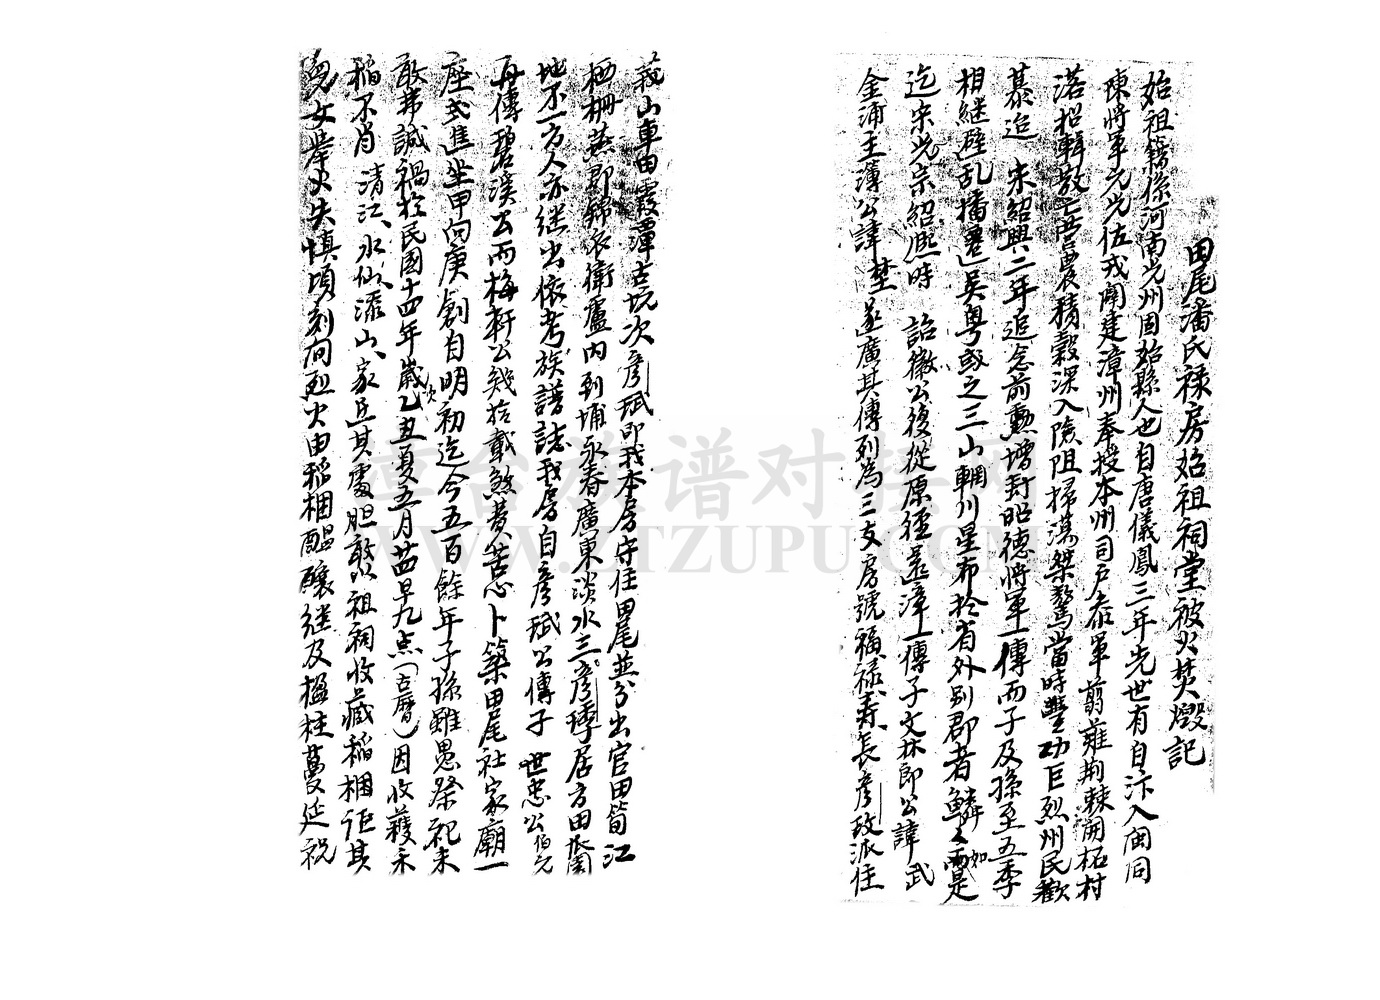 田尾潘氏禄房始祖祠堂被火焚燬記
始祖籍係河南光州固始縣人也自唐儀鳳三年先世有自汴入閩同
陳將軍元光佐戎開建漳州奉授本州司戶參軍剪薙荆棘開柘村
落招輯散亡營農積穀深入險阻掃蕩桀驁當時豐功巨烈州民歡
慕迨 宋紹興二年追念前勳增封昭德將軍一傳而子及孫至五季
相繼避乱播遷吳粤或之三山輞川星布於省外别郡者鱗々如而是
迄宋光宗紹熙時 詒徽公復從原徑還漳一傳子文林郎公諱武
金浦主簿公諱埜 遂廣其傳列為三支房號福禄寿、長彥玫派住
莪山車田霞潭古坑次彥珷即我本房守住田尾並分出官田筒江
栖栅燕郡錦衣衛盧内到埔永春廣東淡水三彥琫居方田
地不一方人亦继出依考族譜誌我房自彥珷公傳子 世忠公伯元
再傳碧溪公而梅軒公幾拮載煞費苦心卜築田尾社家廟一
座式進坐甲向庚創自明初迄今五百餘年子孫雖愚祭祀未
敢弗誠禍於民國十四年歲次乙丑夏五月廿四早九点（古曆）因收蘕禾
稲不肖 清江、水仙、添山、家丘其處胆敢以祖祠收藏稲梱詎其
兒女挙火失慎頃刻间烈火由稲梱醖釀继及楹柱蔓延祝
WWW.CTZUPU.COM